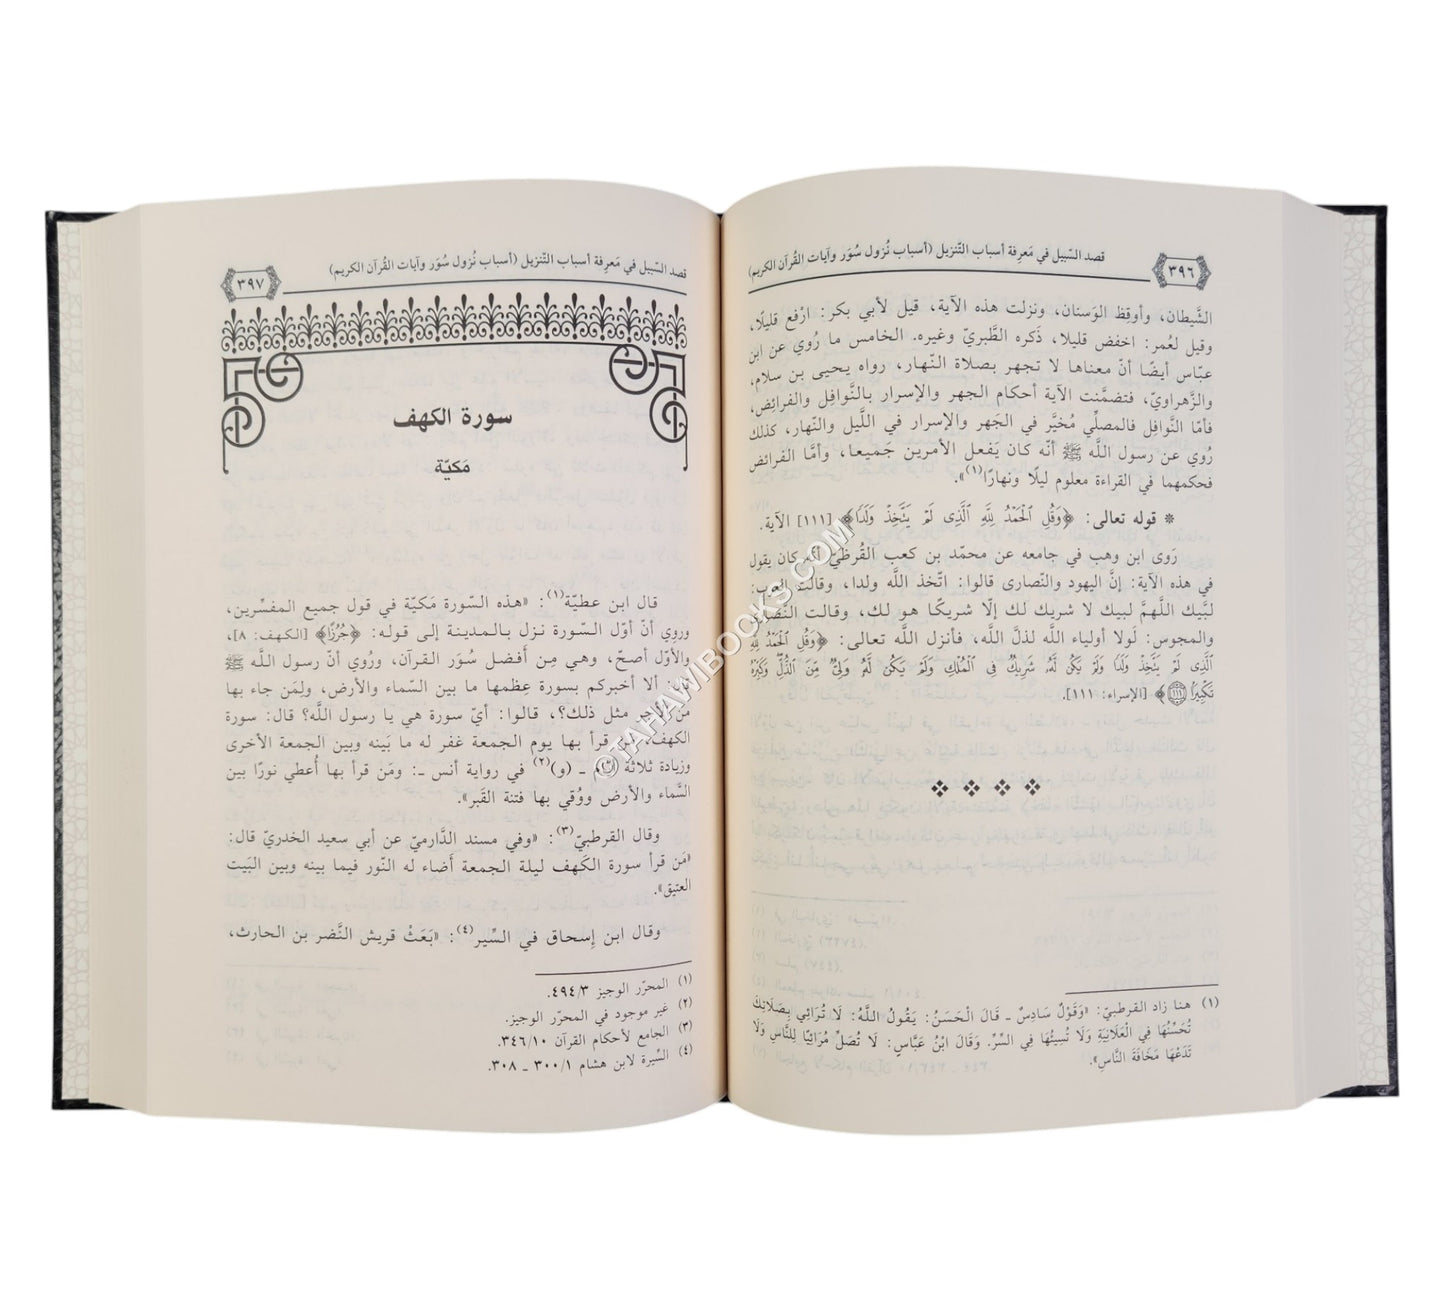 ٣٩٦
قصد السّبيل في مَعرِفة أسباب التّنزيل (أسباب نُزول سُوَر وآيات القُرآن الكريم)
الشَّيطان، وأوقِظ الوَسنان، ونزلت هذه الآية، قيل لأبي بكر: ارْفع قليلًا،
وقيل لعُمر: اخفض قليلا، ذَكره الطَّبريّ وغيره. الخامس ما رُوي عن ابن
عبّاس أيضًا أنّ معناها لا تجهر بصلاة النّهار، رواه يحيى بن سلام،
والزَّهراويّ، فتضمَّنت الآية أحكام الجهر والإسرار بالنَّوافِل والفرائض،
فأمّا النَّوافِل فالمصلِّي مُخيَّر في الجَهر والإسرار في اللَّيل والنّهار، كذلك
رُوي عن رسول اللَّه ﷺ أنّه كان يَفعل الأمرين جَميعا، وأمَّا الفرائض
فحكمهما في القراءة معلوم ليلًا ونهارًا(١)».
* قوله تعالى: ﴿وَقُلِ الْحَمْدُ لِلَّهِ الَّذِى لَمْ يَتَّخِذْ وَلَدًا﴾ [١١١] الآية.
رَوى ابن وهب في جامعه عن محمّد بن كعب القُرظيّ أنّه كان يقول
في هذه الآية: إنَّ اليهود والنّصارى قالوا: اتّخذ اللَّه ولدا، وقالت العرب:
لبَّيك اللَّهمَّ لبيك لا شريك لك إلّا شريكًا هو لك، وقالت النّصارى
والمجوس: لَولا أولياء اللَّه لذلَّ اللَّه، فأنزل اللَّه تعالى: ﴿وَقُلِ الْحَمْدُ لِلَّهِ
الَّذِى لَمْ يَتَّخِذْ وَلَدًا وَلَمْ يَكُن لَّهُ شَرِيكٌ فِى الْمُلْكِ وَلَمْ يَكُن لَّهُ وَلِيٌّ مِّنَ الذُّلِّ وَكَبِّرْهُ
تَكْبِيرًا ﴿١١١﴾﴾ [الإسراء: ١١١].
❖ ❖ ❖ ❖
(١) هنا زاد القرطبيّ: «وَقَوْلٌ سَادِسٌ ـ قَالَ الْحَسَنُ: يَقُولُ اللَّهُ: لَا تُرَائِي بِصَلَاتِكَ
تُحَسِّنُهَا فِي الْعَلَانِيَةِ وَلَا تُسِيئُهَا فِي السِّرِّ. وَقَالَ ابْنُ عَبَّاسٍ: لَا تُصَلِّ مُرَائِيًا لِلنَّاسِ وَلَا
تَدَعْهَا مَخَافَةَ النَّاسِ».
قصد السّبيل في مَعرِفة أسباب التّنزيل (أسباب نُزول سُوَر وآيات القُرآن الكريم)
٣٩٧
سورة الكهف
مَكيّة
قال ابن عطيّة(١): «هذه السّورة مَكيّة في قول جميع المفسِّرين،
وروي أنّ أوّل السّورة نزل بالمدينة إلى قوله: ﴿جُرُزًا﴾ [الكهف: ٨]،
والأوّل أصحّ، وهي مِن أَفضل سُوَر القرآن، ورُوي أنّ رسول اللَّه ﷺ
قال: ألا أخبركم بسورة عِظمها ما بين السّماء والأرض، ولِمَن جاء بها
من الأجر مثل ذلك؟، قالوا: أيّ سورة هي يا رسول اللَّه؟ قال: سورة
الكهف، من قرأ بها يوم الجمعة غفر له ما بَينه وبين الجمعة الأخرى
وزيادة ثلاثة أيّام ـ (و)(٢) في رواية أنس ـ: ومَن قرأ بها أُعطي نورًا بين
السَّماء والأرض ووُقي بها فتنة القَبر».
وقال القرطبيّ(٣): «وفي مسند الدَّارميّ عن أبي سعيد الخدريّ قال:
«مَن قرأ سورة الكَهف ليلة الجمعة أَضاء له النّور فيما بينه وبين البَيت
العتيق».
وقال ابن إسحاق في السِّير(٤): «بَعَثْ قريش النَّضر بن الحارث،
(١) المحرّر الوجيز ٤٩٤/٣.
(٢) غير موجود في المحرّر الوجيز.
(٣) الجامع لأحكام القرآن ٣٤٦/١٠.
(٤) السِّيرة لابن هشام ٣٠٠/١ ـ ٣٠٨.
©TAHAWIBOOKS.COM